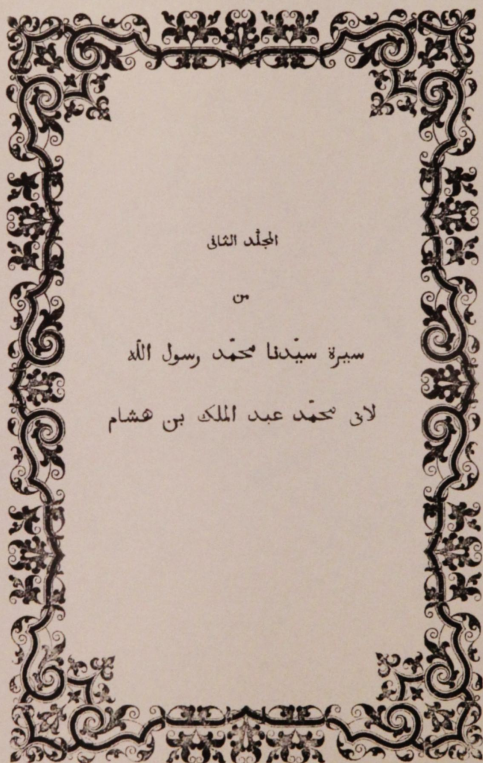 المجلّد الثانى
من
سيرة سيّدنا محمّد رسول الله
لابى محمّد عبد الملك بن هشام